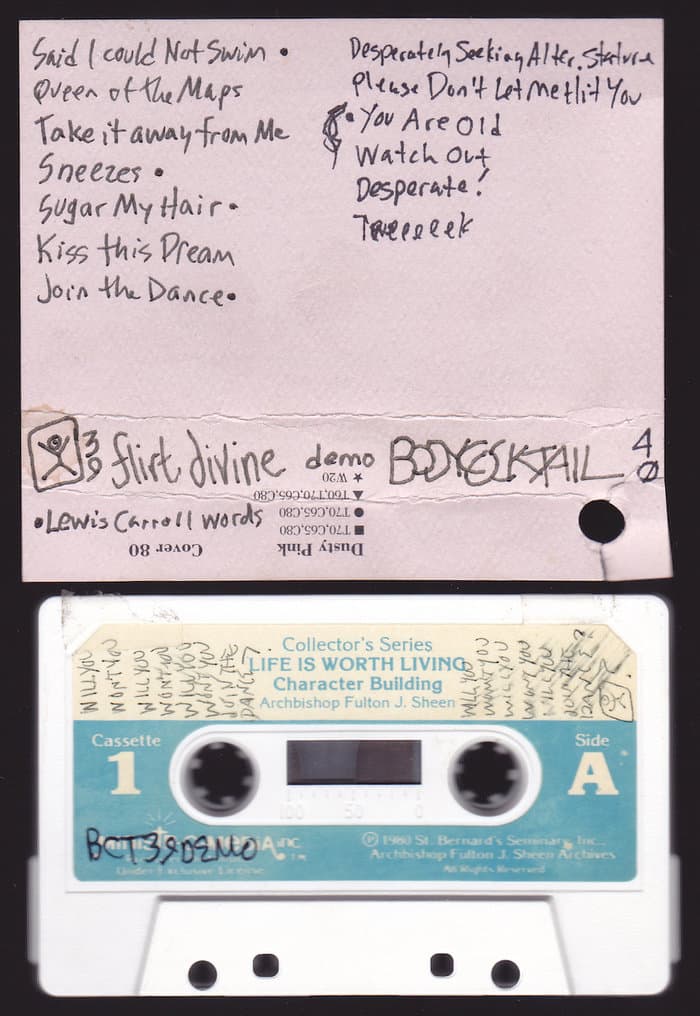 Said I could Not Swim •
Queen of the Maps
Take it away from Me
Sneezes •
Sugar My Hair •
Kiss this Dream
Join the Dance •
Desperately Seeking Alter.
Please Don't Let Me Hit You
• You Are Old
Watch Out
Desperate!
39 flirt divine demo BODYCOCKTAIL 40
• Lewis Carroll words
Dusty Pink Cover 80
■ T70,C65,C80
● T70,C65,C80
▲ T60,T70,C65,C80
★ W20
WILL YOU
WONT YOU
WILL YOU
WONT YOU
WILL YOU
WONT YOU
JOIN THE
DANCE?
Collector's Series
LIFE IS WORTH LIVING
Character Building
Archbishop Fulton J. Sheen
WILL YOU
WONT YOU
WILL YOU
WONT YOU
WILL YOU
Cassette
1
Side
A
BCT39DEMO
INC.
Under Exclusive License
℗ 1980 St. Bernard's Seminary, Inc.,
Archbishop Fulton J. Sheen Archives
All Rights Reserved
100 50 0